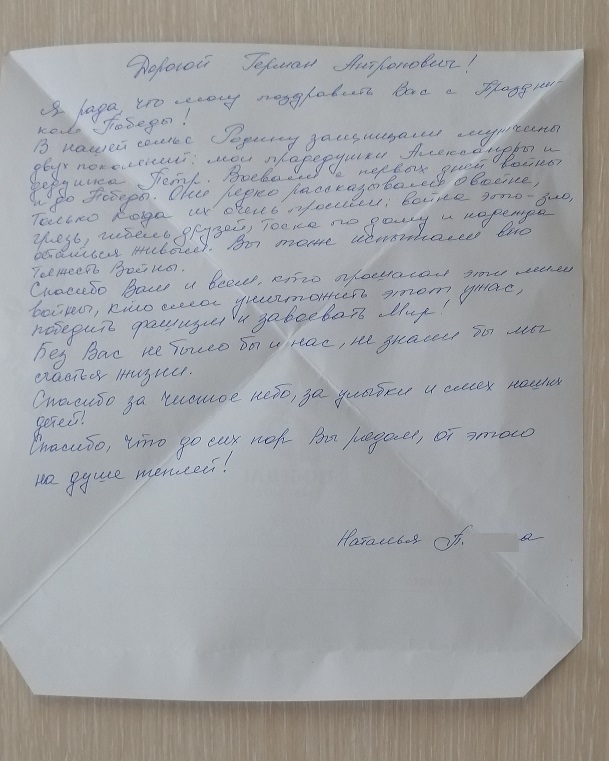 Дорогой Герман Антронович!
Я рада, что могу поздравить Вас с Праздни-
ком Победы!
В нашей семье Родину защищали мужчины
двух поколений: мои прадедушки Александры и
дедушка Пётр. Воевали с первых дней войны
и до Победы. Они редко рассказывали о войне,
только когда их очень просили: война это - зло,
грязь, гибель друзей, тоска по дому и надежда
остаться живым. Вы тоже испытали всю
тяжесть Войны.
Спасибо Вам и всем, кто прошагал эти мили
войны, кто смог уничтожить этот ужас,
победить фашизм и завоевать Мир!
Без Вас не было бы и нас, не знали бы мы
счастья жизни.
Спасибо за чистое небо, за улыбки и смех наших
детей!
Спасибо, что до сих пор Вы рядом, от этого
на душе теплей!
Наталья П. а